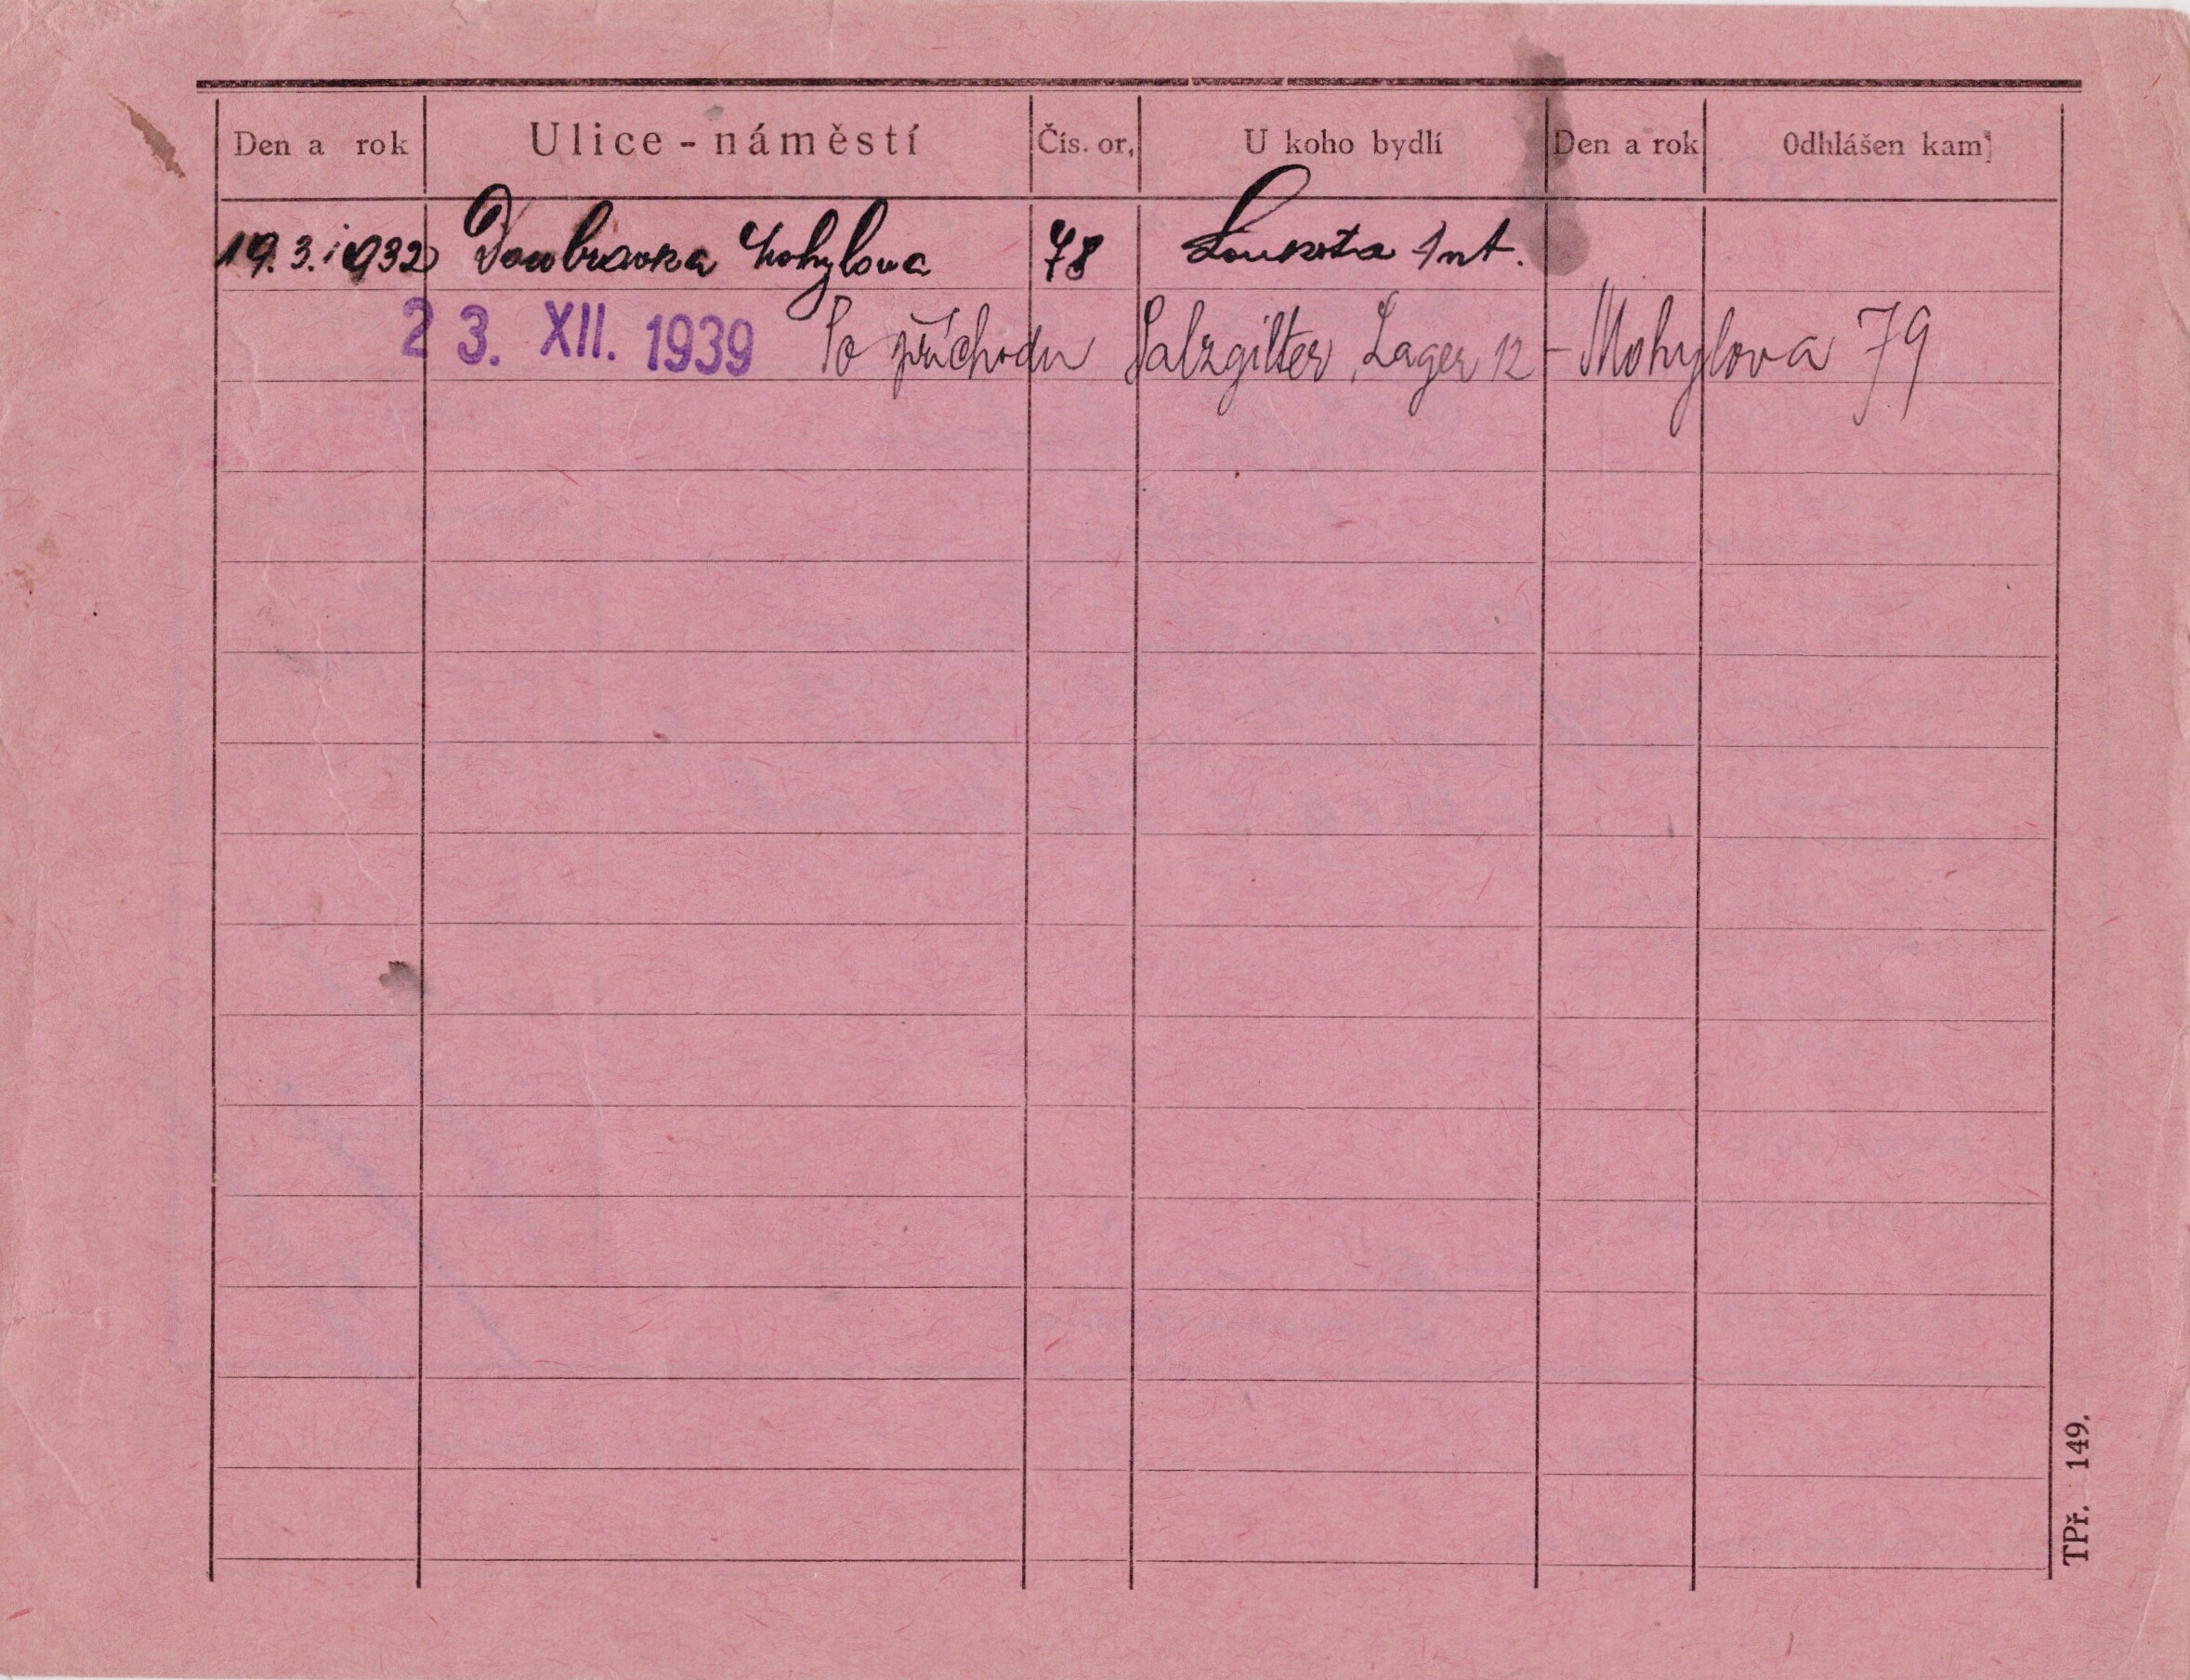 Den a rok Ulice - náměstí Čís. or. U koho bydlí Den a rok Odhlášen kam
19.3.1932 Doubravka Mohylova 78 Loukota Ant.
23. XII. 1939 Po příchodu Salzgitter, Lager 12 - Mohylova 79
TPř. 149.